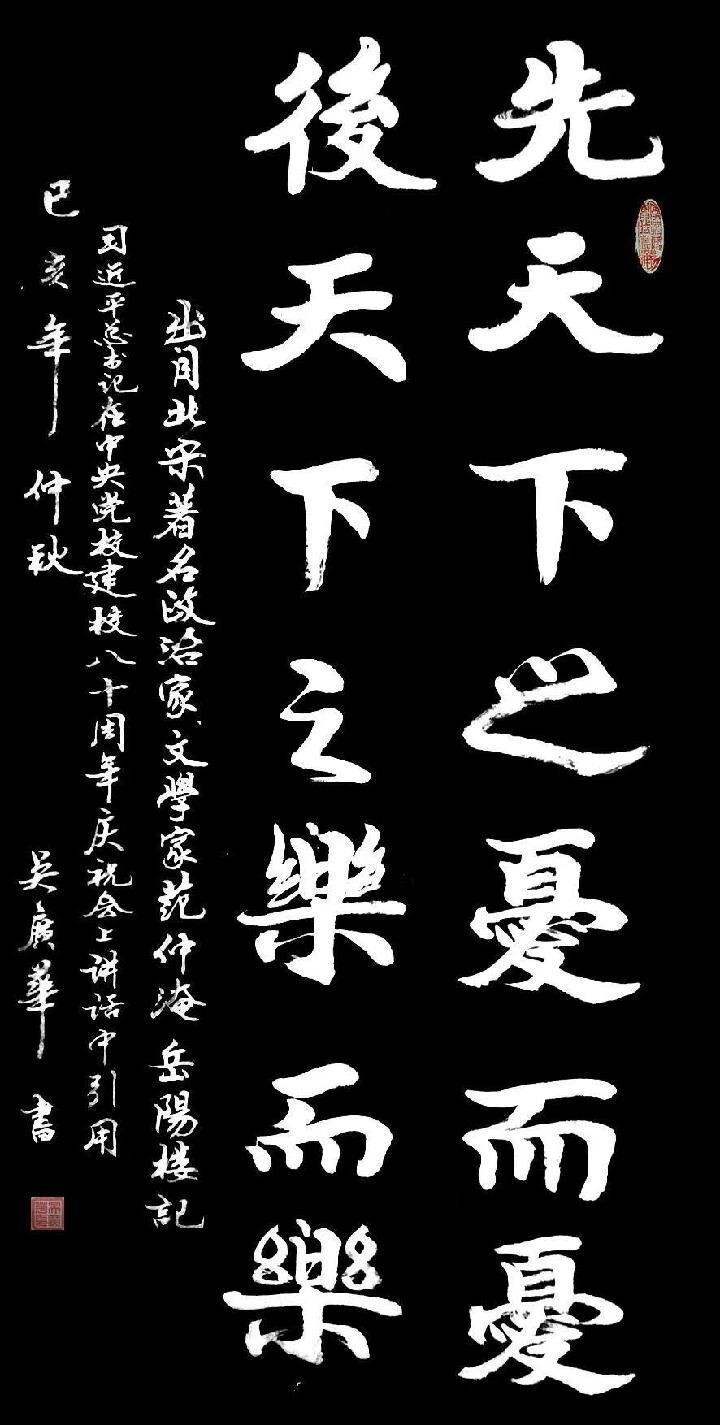 先天下之憂而憂
後天下之樂而樂
出自北宋著名政治家、文學家范仲淹岳陽楼記
习近平总书记在中央党校建校八十周年庆祝会上讲话中引用
己亥年仲秋 吴廣華書